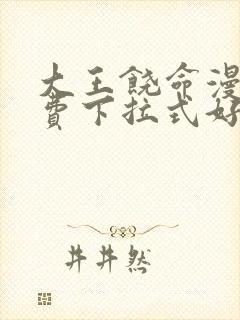 大王饶命漫
费下拉式好
井井然